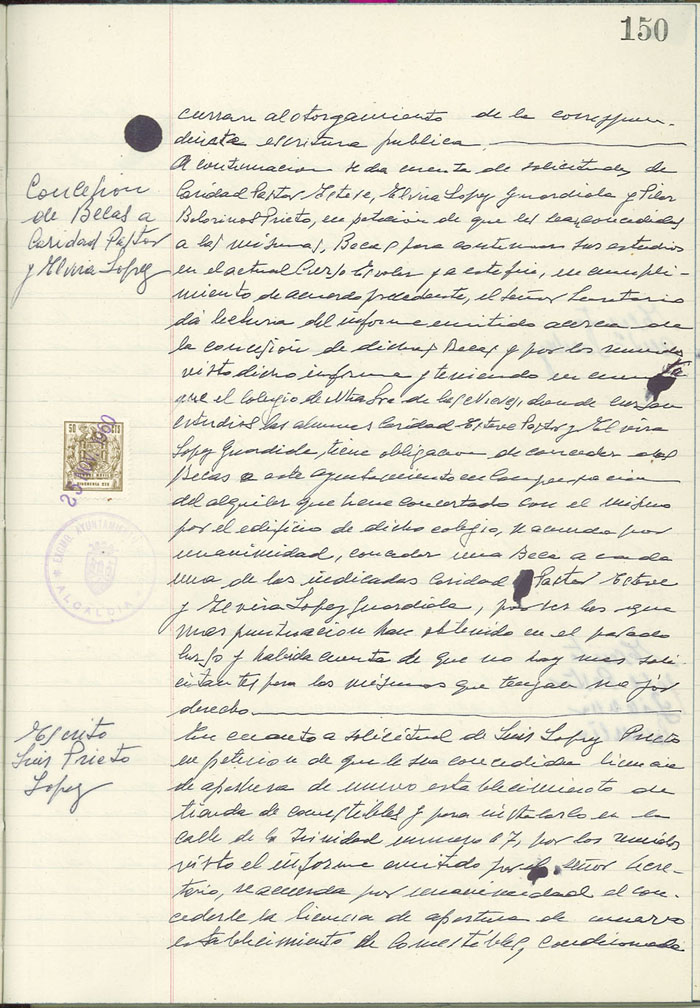 150
curran al otorgamiento de la correspon-
diente escritura publica.
Concesion
de Becas a
Caridad Pastor
y Elvira Lopez
A continuacion se da cuenta de solicitudes de
Caridad Pastor Esteve, Elvira Lopez Guardiola y Pilar
Bolorinos Prieto, en peticion de que les sean concedidas
a las mismas, Becas para continuar sus estudios
en el actual Curso Escolar y a este fin, en cumpli-
miento de acuerdo precedente, el señor Secretario
da lectura del informe emitido acerca de
la concesion de dichas Becas y por los reunidos
visto dicho informe y teniendo en cuenta
que el Colegio de Ntra Sra de las Nieves, donde cursan
estudios las alumnas Caridad Esteve Pastor y Elvira
Lopez Guardiola, tiene obligacion de conceder dos
Becas a este Ayuntamiento en compensacion
del alquiler que tiene concertado con el mismo
por el edificio de dicho colegio, se acuerda por
unanimidad, conceder una Beca a cada
una de las indicadas Caridad Pastor Esteve
y Elvira Lopez Guardiola, por ser las que
mas puntuacion han obtenido en el pasado
curso y habida cuenta de que no hay mas soli-
citantes para las mismas que tengan mejor
derecho.
50 CTS
25 NOV 1960
EXCMO. AYUNTAMIENTO
ALCALDIA
Escrito
Luis Prieto
Lopez
En cuanto a solicitud de Luis Lopez Prieto
en peticion de que le sea concedida licencia
de apertura de nuevo establecimiento de
tienda de comestibles y para instalarlo en la
calle de la Trinidad numero 7, por los reunidos
visto el informe emitido por el señor Secre-
tario, se acuerda por unanimidad el con-
cederle la licencia de apertura de nuevo
establecimiento de Comestibles, condicionada